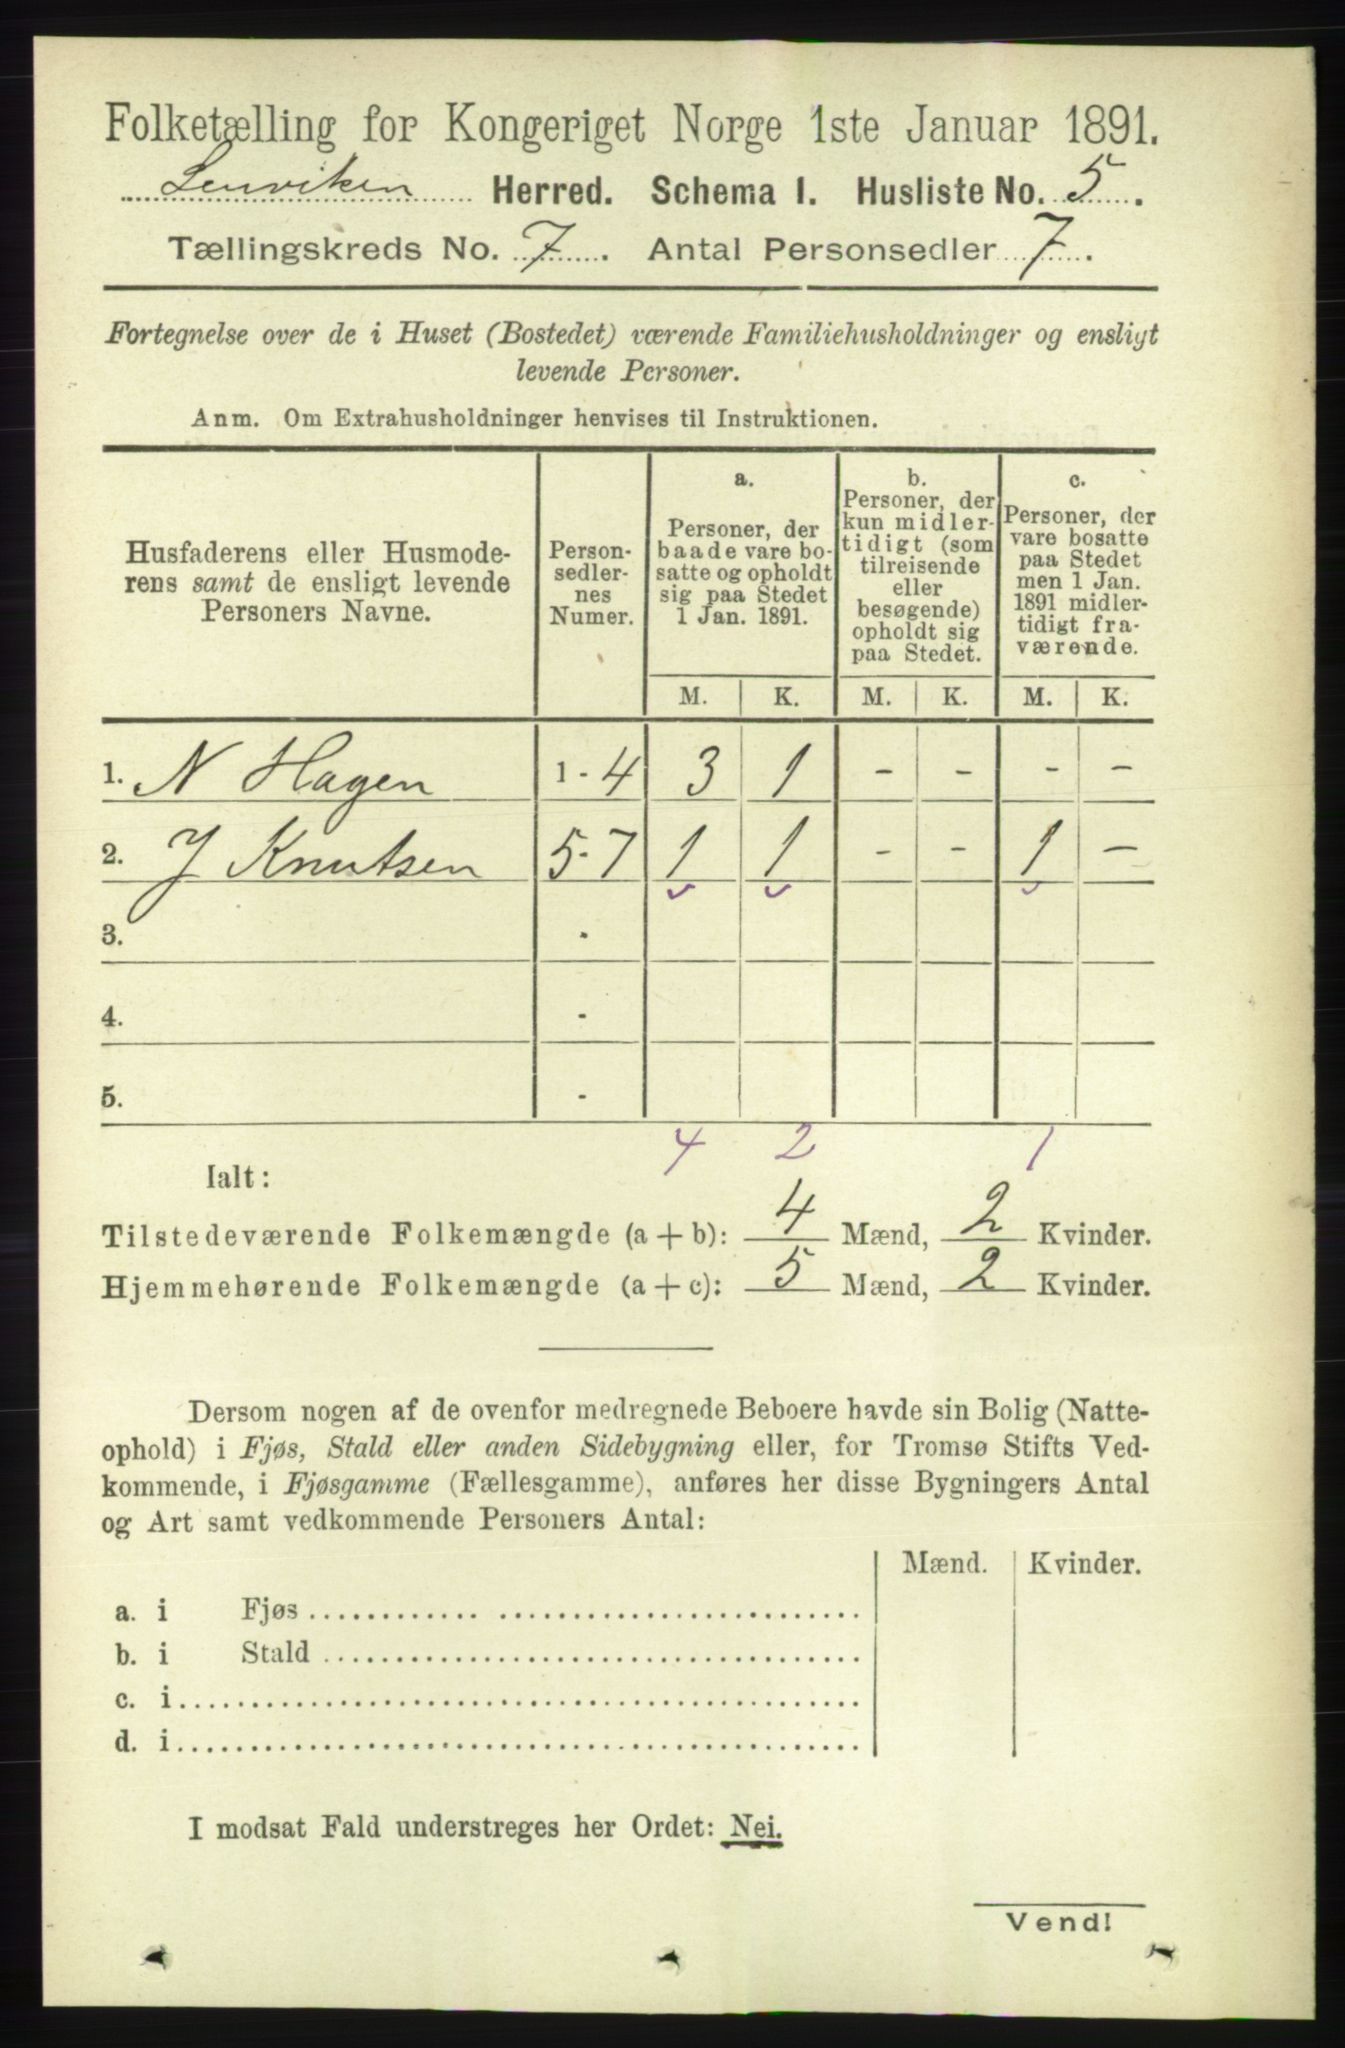 Folketælling for Kongeriget Norge 1ste Januar 1891.
Lenviken Herred. Schema 1. Husliste No. 5.
Tællingskreds No. 7. Antal Personsedler 7.
Fortegnelse over de i Huset (Bostedet) værende Familiehusholdninger og ensligt
levende Personer.
Anm. Om Extrahusholdninger henvises til Instruktionen.
Husfaderens eller Husmode-
rens samt de ensligt levende
Personers Navne.
Person-
sedler-
nes
Numer.
a.
Personer, der
baade vare bo-
satte og opholdt
sig paa Stedet
1 Jan. 1891.
b.
Personer, der
kun midler-
tidigt (som
tilreisende
eller
besøgende)
opholdt sig
paa Stedet.
c.
Personer, der
vare bosatte
paa Stedet
men 1 Jan.
1891 midler-
tidigt fra-
værende.
M. K. M. K. M. K.
1. N Hagen 1-4 3 1 - - - -
2. J Knutsen 5-7 1 1 - - 1 -
3. -
4. -
5. -
4 2 1
Ialt:
Tilstedeværende Folkemængde (a + b): 4 Mænd, 2 Kvinder.
Hjemmehørende Folkemængde (a + c): 5 Mænd, 2 Kvinder.
Dersom nogen af de ovenfor medregnede Beboere havde sin Bolig (Natte-
ophold) i Fjøs, Stald eller anden Sidebygning eller, for Tromsø Stifts Ved-
kommende, i Fjøsgamme (Fællesgamme), anføres her disse Bygningers Antal
og Art samt vedkommende Personers Antal:
Mænd. Kvinder.
a. i Fjøs
b. i Stald
c. i
d. i
I modsat Fald understreges her Ordet: Nei.
Vend!